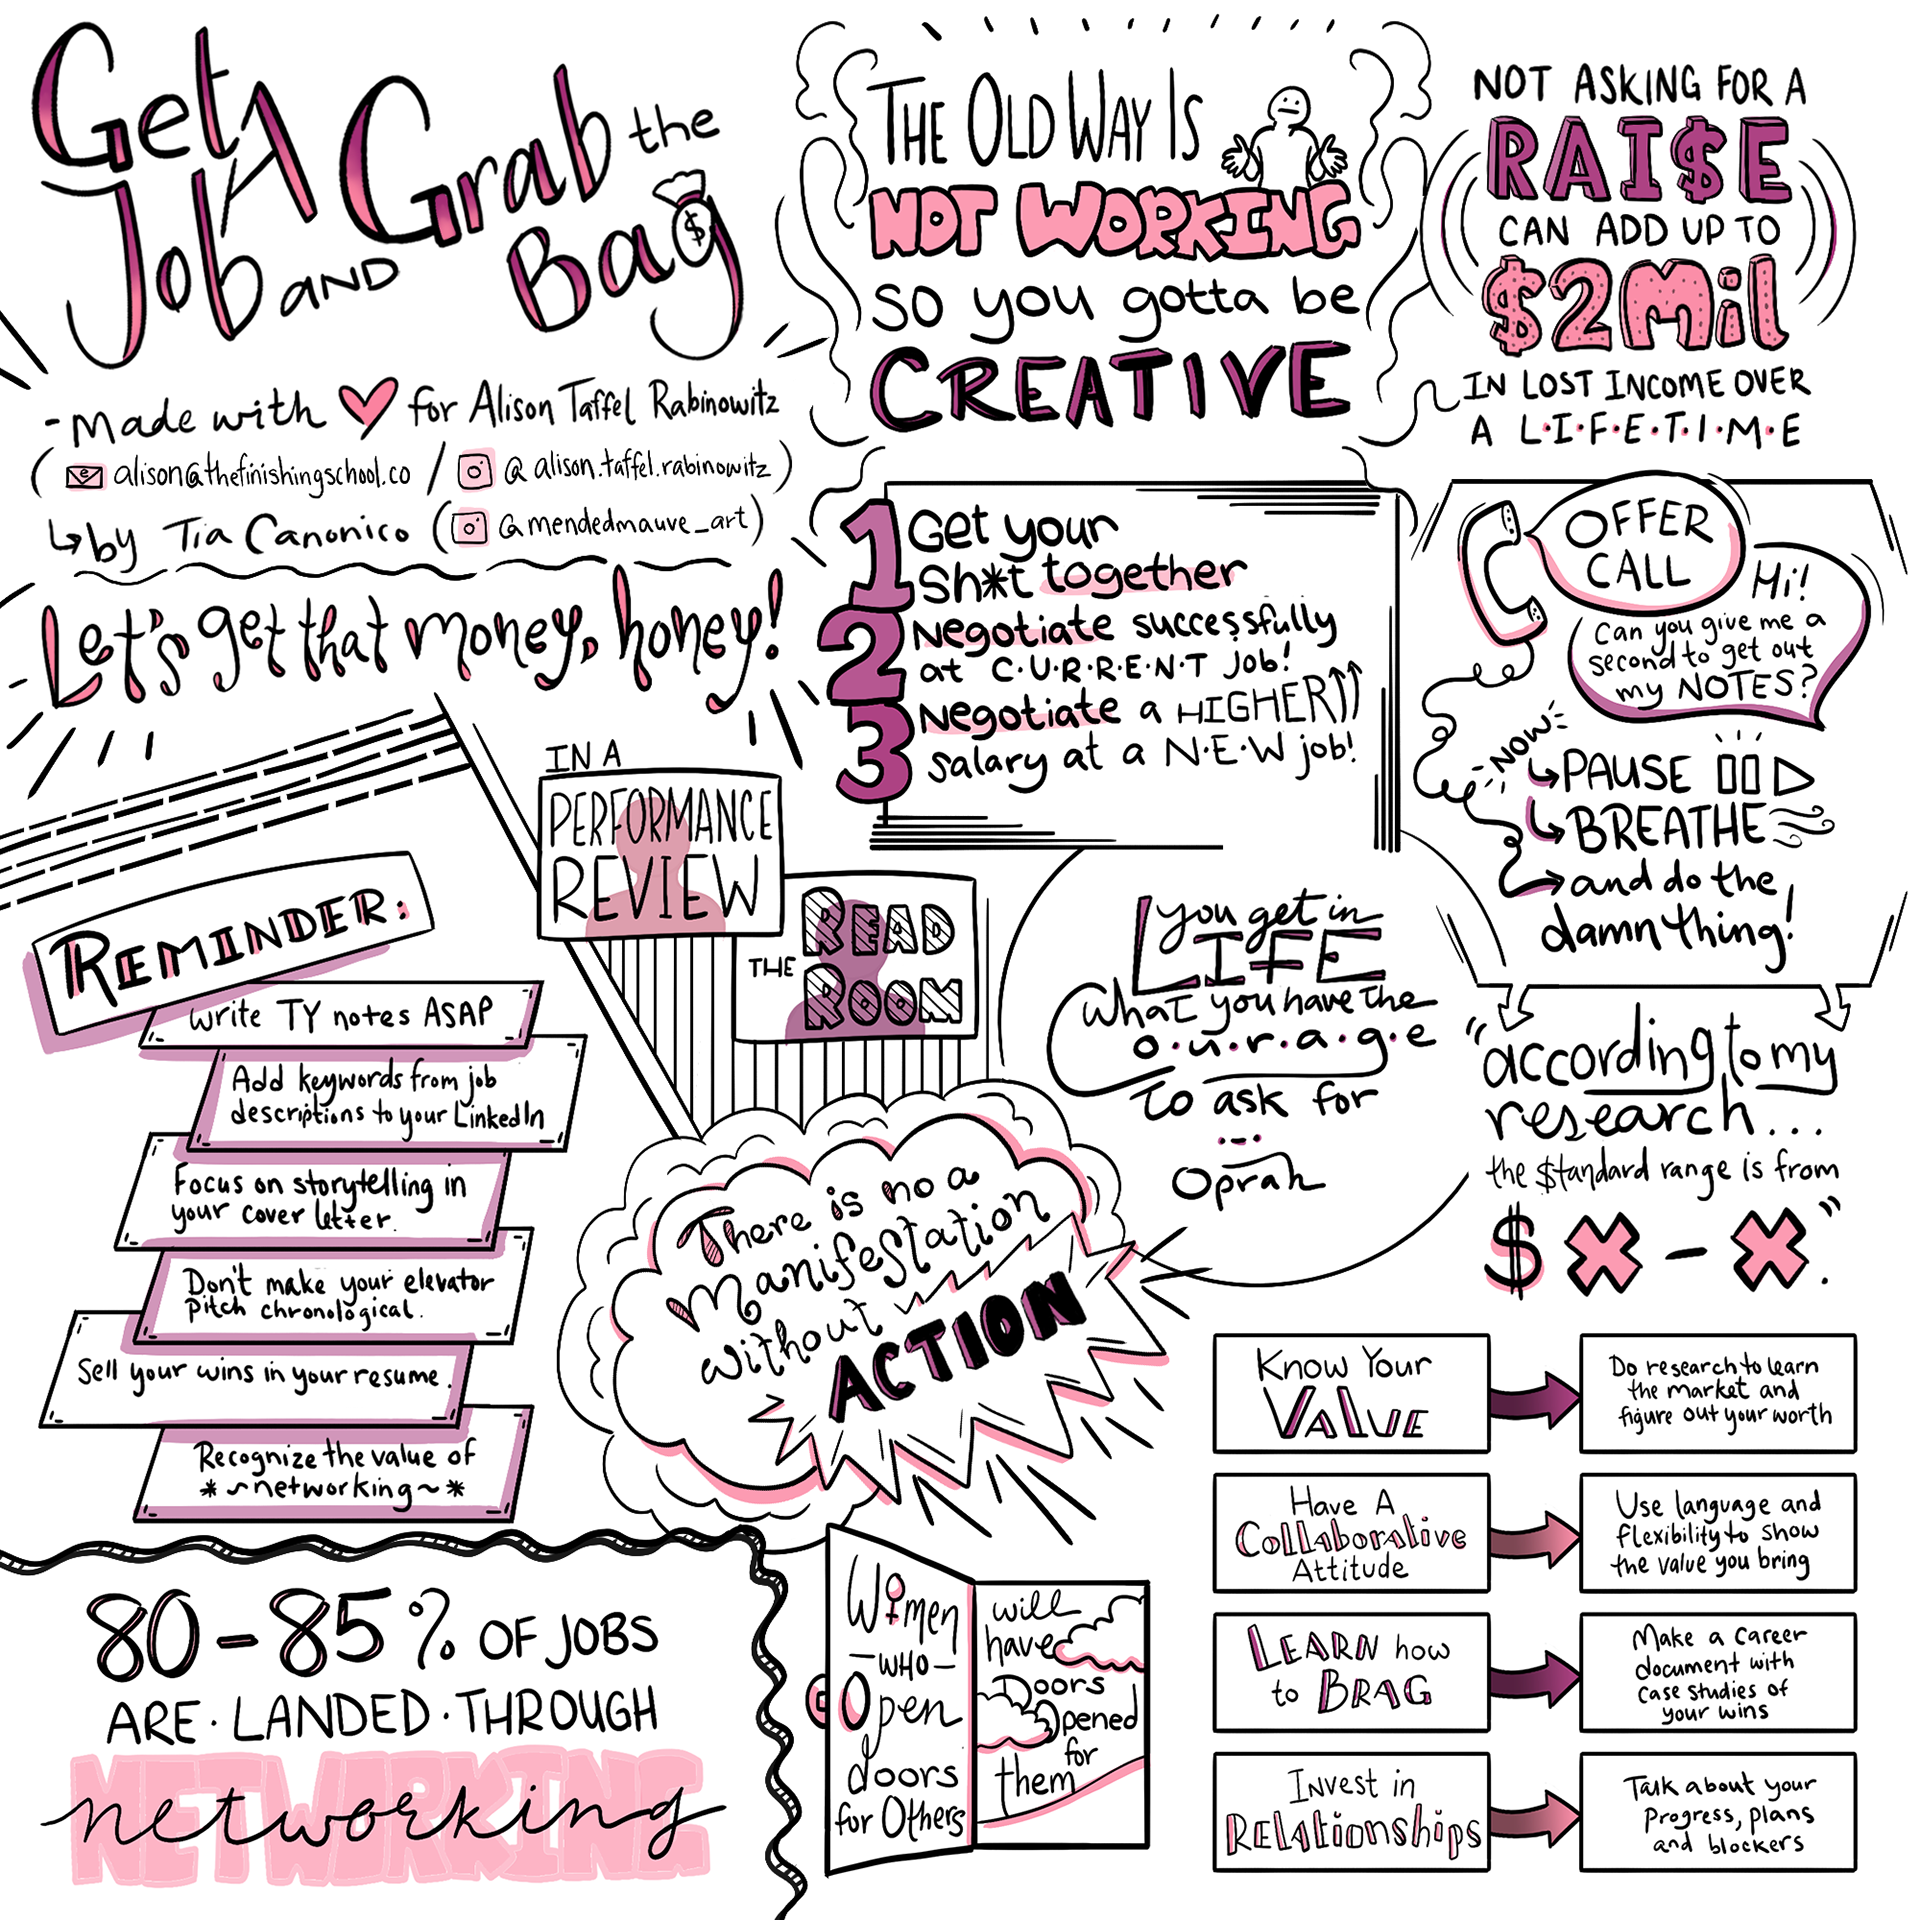 Get A
Job AND Grab the
Bag
$
- Made with for Alison Taffel Rabinowitz
( alison@thefinishingschool.co / @ alison.taffel.rabinowitz )
by Tia Canonico ( @mendedmauve_art )
Let's get that money, honey!
THE OLD WAY IS
NOT WORKING
so you gotta be
CREATIVE
NOT ASKING FOR A
RAI$E
CAN ADD UP TO
$2Mil
IN LOST INCOME OVER
A L·I·F·E·T·I·M·E
1 Get your
Sh*t together
2 Negotiate successfully
at C·U·R·R·E·N·T job!
3 Negotiate a HIGHER
salary at a N·E·W job!
OFFER
CALL
Hi!
Can you give me a
second to get out
my NOTES?
NOW
PAUSE
BREATHE
and do the
damn thing!
"according to my
research...
the $tandard range is from
$ X - X."
IN A
PERFORMANCE
REVIEW
READ
THE ROOM
REMINDER:
Write TY notes ASAP
Add keywords from job
descriptions to your LinkedIn
Focus on storytelling in
your cover letter.
Don't make your elevator
pitch chronological.
Sell your wins in your resume.
Recognize the value of
* ~networking~ *
you get in
LIFE
What you have the
C o.u.r.a.g.e
to ask for
...
Oprah
There is no a
Manifestation
without
ACTION
Know Your
VALUE
Do research to learn
the market and
figure out your worth
Have A
Collaborative
Attitude
Use language and
flexibility to show
the value you bring
LEARN how
to BRAG
Make a career
document with
case studies of
your wins
Invest in
RELAtionships
Talk about your
Progress, plans
and blockers
80-85% OF JOBS
ARE·LANDED·THROUGH
NETWORKING
networking
Women
-WHO-
Open
doors
for Others
will
have
Doors
Opened
for
them